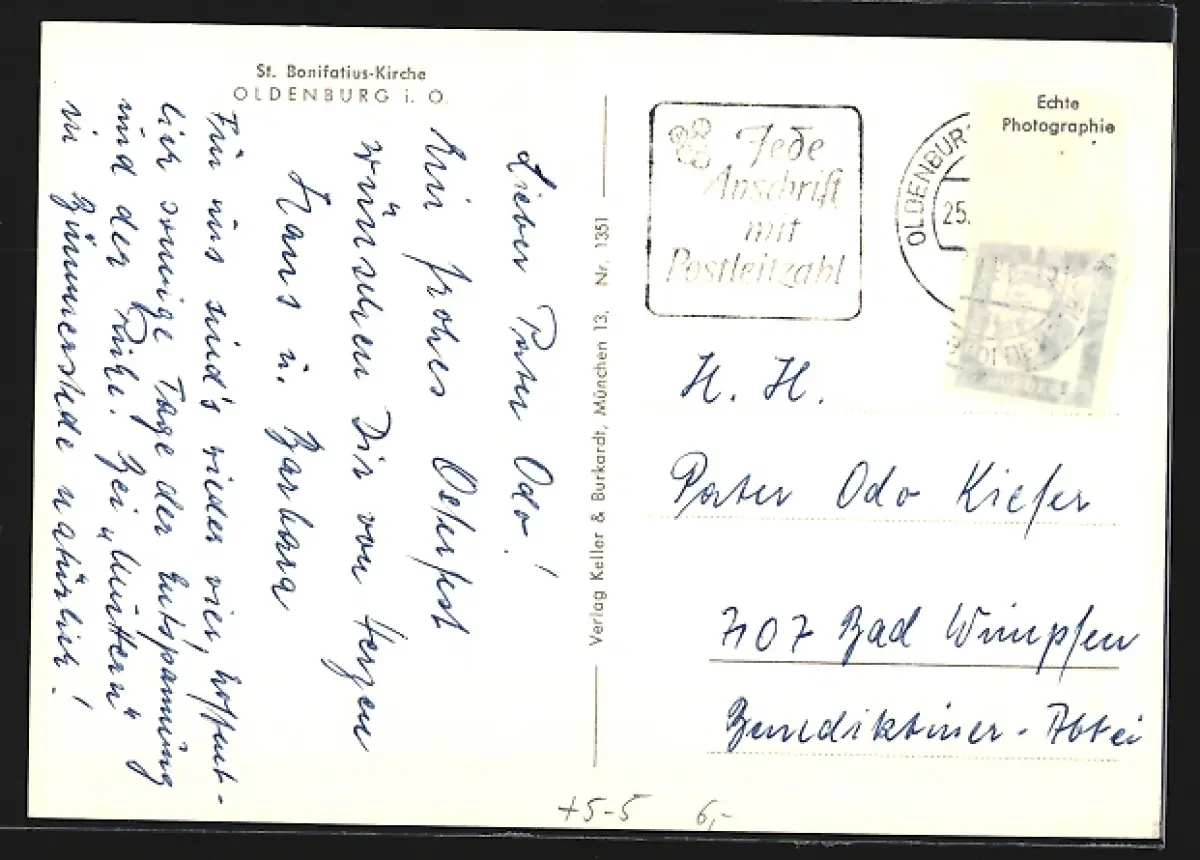 St. Bonifatius-Kirche
OLDENBURG i. O.
Lieber Pater Odo!
Ein frohes Osterfest
wünschen Dir von Herzen
Hans u. Barbara
Für uns sind's wieder vier, hoffent-
lich sonnige Tage der Entspannung
und der Ruhe. Bei „Muttern“
in Zimmerstede natürlich!
Verlag Keller & Burkardt, München 13, Nr. 1351
Jede
Anschrift
mit
Postleitzahl
OLDENBUR
25.
Echte
Photographie
H. H.
Pater Odo Kiefer
7107 Bad Wimpfen
Benediktiner-Abtei
+5-5 6,-